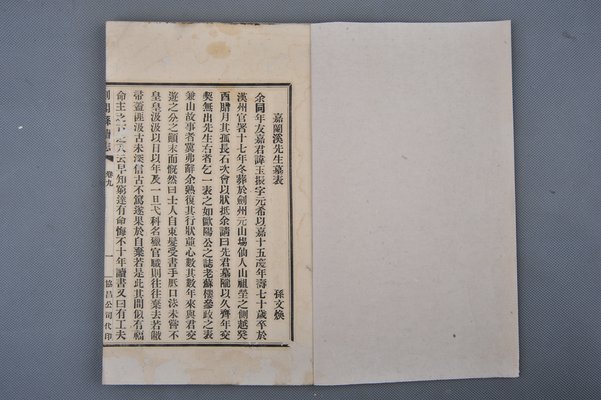 嘉蘭溪先生墓表
孫文煥
余同年友嘉君諱玉振字元希以嘉十五度年壽七十歲卒於
漢州官署十七年冬葬於劍州元山場仙人山祖塋之側越癸
酉腊月其孤長石次會以狀抵余請曰先君墓隴以久齊年交
契無出先生右者乞一表之如歐陽公之誌老蘇權參政之表
兼山故事者冀弗辭余熟復其行狀並心數其數年來與君交
遊之分之顛末而慨然曰士人自束髮受書手胝口沫未嘗不
皇皇汲汲以目以年及一旦弋科名獵官職則往往棄去若
帶蓋匪汲古未深信古不篤遂果於自棄若是此其間似有福
命主之
早知窮達有命悔不十年讀書又曰有工夫
卷九
一
協昌公司代印